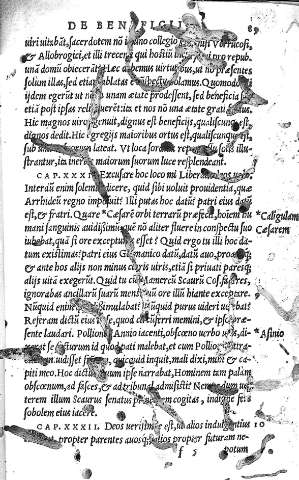 DE BENEFICII 89
uiri uixerāt, sacerdotem nō in uno collegio
& Allobrogici, et illi trecenti qui hostiū pro repub.
unā domū obiecerāt? Hæc debemus uirtutibus, ut nō præsentes
solum illas, sed etiā ablatas è conspectu colamus. Quomodo
ijdem egerūt ut nō in unam ætatē prodessent, sed beneficia
etiā post ipsos relinquerēt: ita et nos nō una ætate grati
Hic magnos uiros genuit, dignus est beneficijs, qualiscunq; est,
dignos dedit. Hic egregijs maioribus ortus est, qualiscunq; est,
sub umbra suorum lateat. Vt loca sordida repercussu solis illu-
strantur, ita inertes maiorum suorum luce resplendeant.
CAP. XXXI. Excusare hoc loco mi Liberalis
Interdū enim solemus dicere, quid sibi uoluit prouidentia, quæ
Arrhidæū regno imposuit? Illi putas hoc datū? patri eius datū
est, & fratri. Quare Cæsarē orbi terrarū præfecit, hominē hu
mani sanguinis auidissimū, quē nō aliter fluere in conspectu suo
iubebat, quā si ore excepturus esset? Quid ergo tu illi hoc da-
tum existimas? patri eius Germanico datū, datū auo, proauoq;
& ante hos alijs non minus claris uiris, etiā si priuati paresq;
alijs uitā exegerūt. Quid tu cū Mamercū Scaurū Cos. faceres,
ignorabas ancillarū suarū menstruū ore illū hiante excepere.
Nūquid enim ipse dissimulabat? Nūquid purus uideri uolebat?
Referam dictū eius in se, quod circūferri memini, & ipso præ-
sente laudari. Pollioni Annio iacenti, obscœno uerbo usus, di-
xerat se facturum id quod pati malebat, et cum Pollionis
attractiorem uidisset frontem, quicquid inquit, mali dixi, mihi & ca-
piti meo. Hoc dictum suum ipse narrabat. Hominem tam palam
obscœnum, ad fasces, & ad tribunal admisisti? Nempe dum ue-
terem illum Scaurum senatus principem cogitas, indigne fers
sobolem eius iacere.
CAP. XXXII. Deos uerisimile est, ut alios indulgentius
propter parentes auosq; alios propter futuram ne-
f 5 potum
*Caligulam
Cæsarem
*Asinio
10